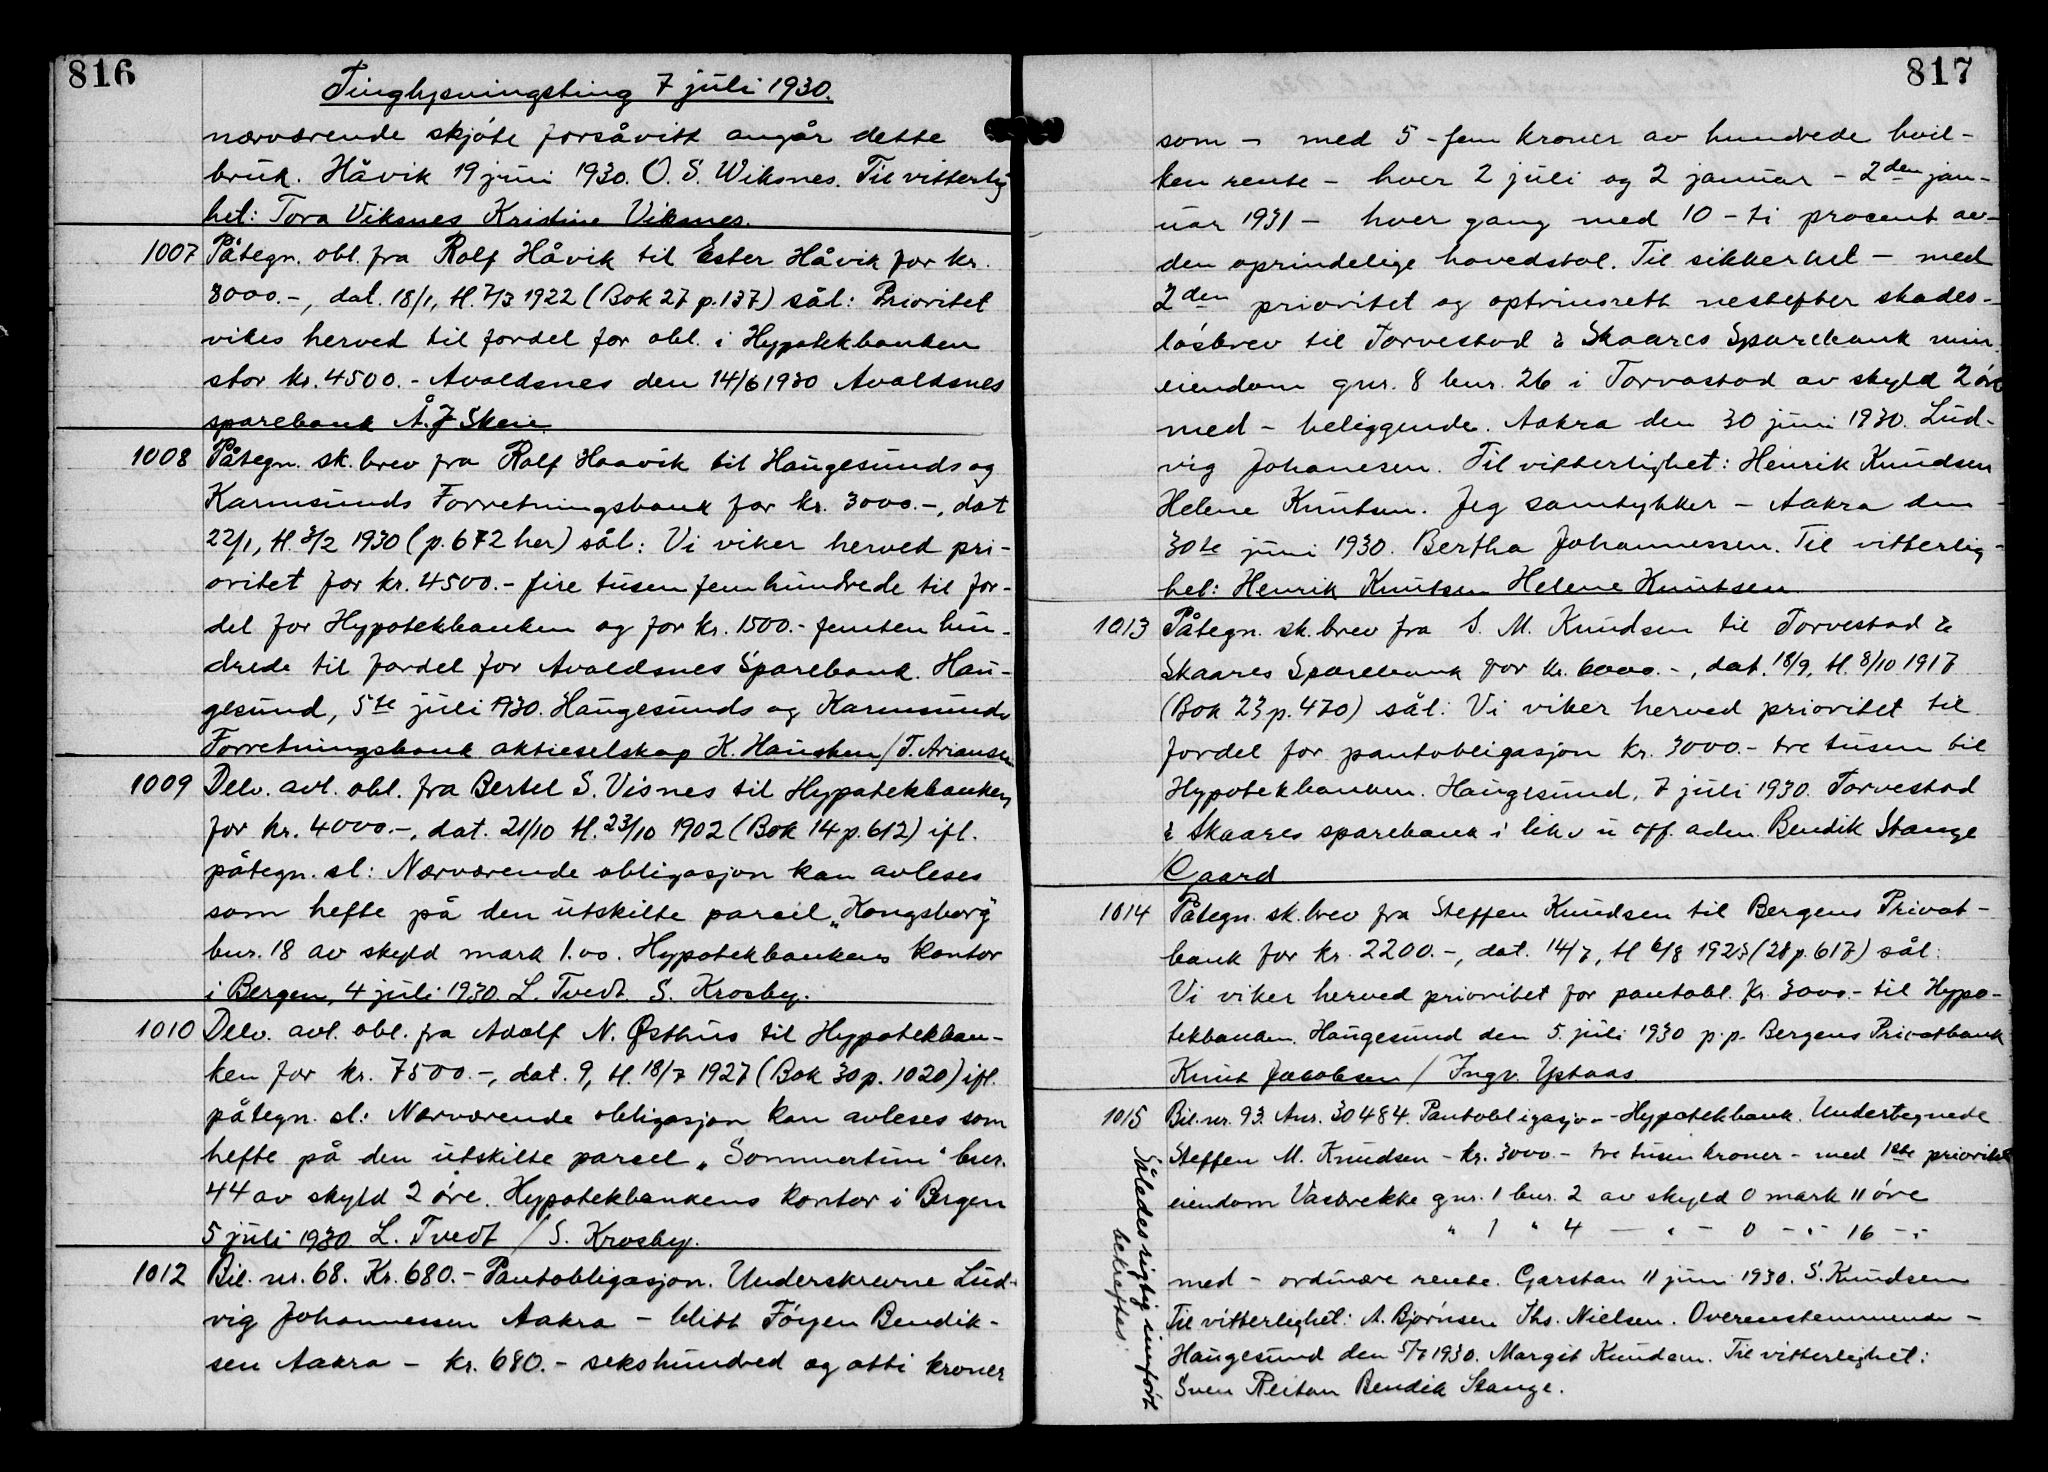 816
Tinglysningsting 7 juli 1930.
nærværende skjöte forsåvitt angår dette
bruk. Håvik 19 juni 1930. O. S. Wiksnes. Til vitterlig
het: Tora Viksnes Kristine Viksnes.
1007 Påtegn. obl. fra Rolf Håvik til Ester Håvik for kr.
8000.-, dat. 18/1, tl. 7/3 1922 (Bok 27 p. 137) sål: Prioritet
vikes herved til fordel for obl. i Hypotekbanken
stor kr. 4500.- Avaldsnes den 14/6 1930 Avaldsnes
sparebank Å. J Skeie.
1008 Påtegn. sk.brev fra Rolf Haavik til Haugesunds og
Karmsunds Forretningsbank for kr. 3000.-, dat
22/1, tl. 3/2 1930 (p. 672 her) sål: Vi viker herved pri-
oritet for kr. 4500.- fire tusen femhundrede til for-
del for Hypotekbanken og for kr. 1500.- femten hun-
drede til fordel for Avaldsnes Sparebank. Hau-
gesund, 5te juli 1930. Haugesunds og Karmsunds
Forretningsbank aktieselskap K. Hausken / T. Ariansen
1009 Delv. avl. obl. fra Bertel S. Visnes til Hypotekbanken
for kr. 4000.-, dat. 21/10 tl. 23/10 1902 (Bok 14 p. 612) ifl.
påtegn. sl: Nærværende obligasjon kan avleses
som hefte på den utskilte parcel „Kongsborg"
bnr. 18 av skyld mark 1.00. Hypotekbankens kontor
i Bergen, 4 juli 1930. L. Tvedt S. Krosby.
1010 Delv. avl. obl. fra Adolf N. Østhus til Hypotekban-
ken for kr. 7500.-, dat. 9, tl. 18/7 1927 (Bok 30 p. 1020) ifl.
påtegn. sl: Nærværende obligasjon kan avleses som
hefte på den utskilte parcel „Sommertun" bnr.
44 av skyld 2 öre. Hypotekbankens kontor i Bergen
5 juli 1930. L. Tvedt / S. Krosby.
1012 Bil. nr. 68. Kr. 680.- Pantobligasjon. Underskrevne Lud-
vig Johannessen Aakra - blitt Föyen Bendik-
sen Aakra - kr. 680.- sekshundred og otti kroner
817
som - med 5 - fem kroner av hundrede hvil-
ken rente - hver 2 juli og 2 januar - 2den jan-
uar 1931 - hver gang med 10 - ti procent av
den oprindelige hovedstol. Til sikkerhet - med
2den prioritet og optrinsrett nestefter skades-
lösbrev til Torvestad & Skaares Sparebank min
eiendom gnr. 8 bnr. 26 i Torvastad av skyld 2 öre
med - beliggende. Aakra den 30 juni 1930. Lud-
vig Johanesen. Til vitterlighet: Henrik Knudsen
Helene Knutsen. Jeg samtykker - Aakra den
30te juni 1930. Bertha Johannessen. Til vitterlig-
het: Henrik Knutsen Helene Knutsen.
1013 Påtegn. sk.brev fra S. M. Knudsen til Torvestad &
Skaares Sparebank for kr. 6000.-, dat. 18/9, tl. 8/10 1917
(Bok 23 p. 470) sål: Vi viker herved prioritet til
fordel for pantobligasjon kr. 3000.- tre tusen til
Hypotekbanken. Haugesund, 7 juli 1930. Torvestad
& Skaares sparebank i likv u off. adm. Bendik Stange
Gaard
1014 Påtegn. sk.brev fra Steffen Knudsen til Bergens Privat-
bank for kr. 2200.-, dat. 14/7, tl 6/8 1923 (28 p. 617) sål:
Vi viker herved prioritet for pantobl. kr. 3000.- til Hypo-
tekbanken. Haugesund den 5. juli 1930 p.p. Bergens Privatbank
Knut Jacobsen / Ingv. Ystaas.
1015 Bil. nr. 93. Anr. 30484. Pantobligasjon - Hypotekbank. Undertegnede
Steffen M. Knudsen - kr. 3000.- tre tusen kroner - med 1ste prioritet
eiendom Vasbrekke gnr. 1 bnr. 2 av skyld 0 mark 11 öre
" 1 " 4 - " - 0 - " - 16 - "
med - ordinære rente. Garstan 11 juni 1930. S. Knudsen
Til vitterlighet: A. Björnsen Ths. Nielsen. Overensstemmende -
Haugesund den 5/7 1930. Margit Knudsen. Til vitterlighet:
Sven Reitan Bendik Stange.
Således rigtig innfört
bekreftes: